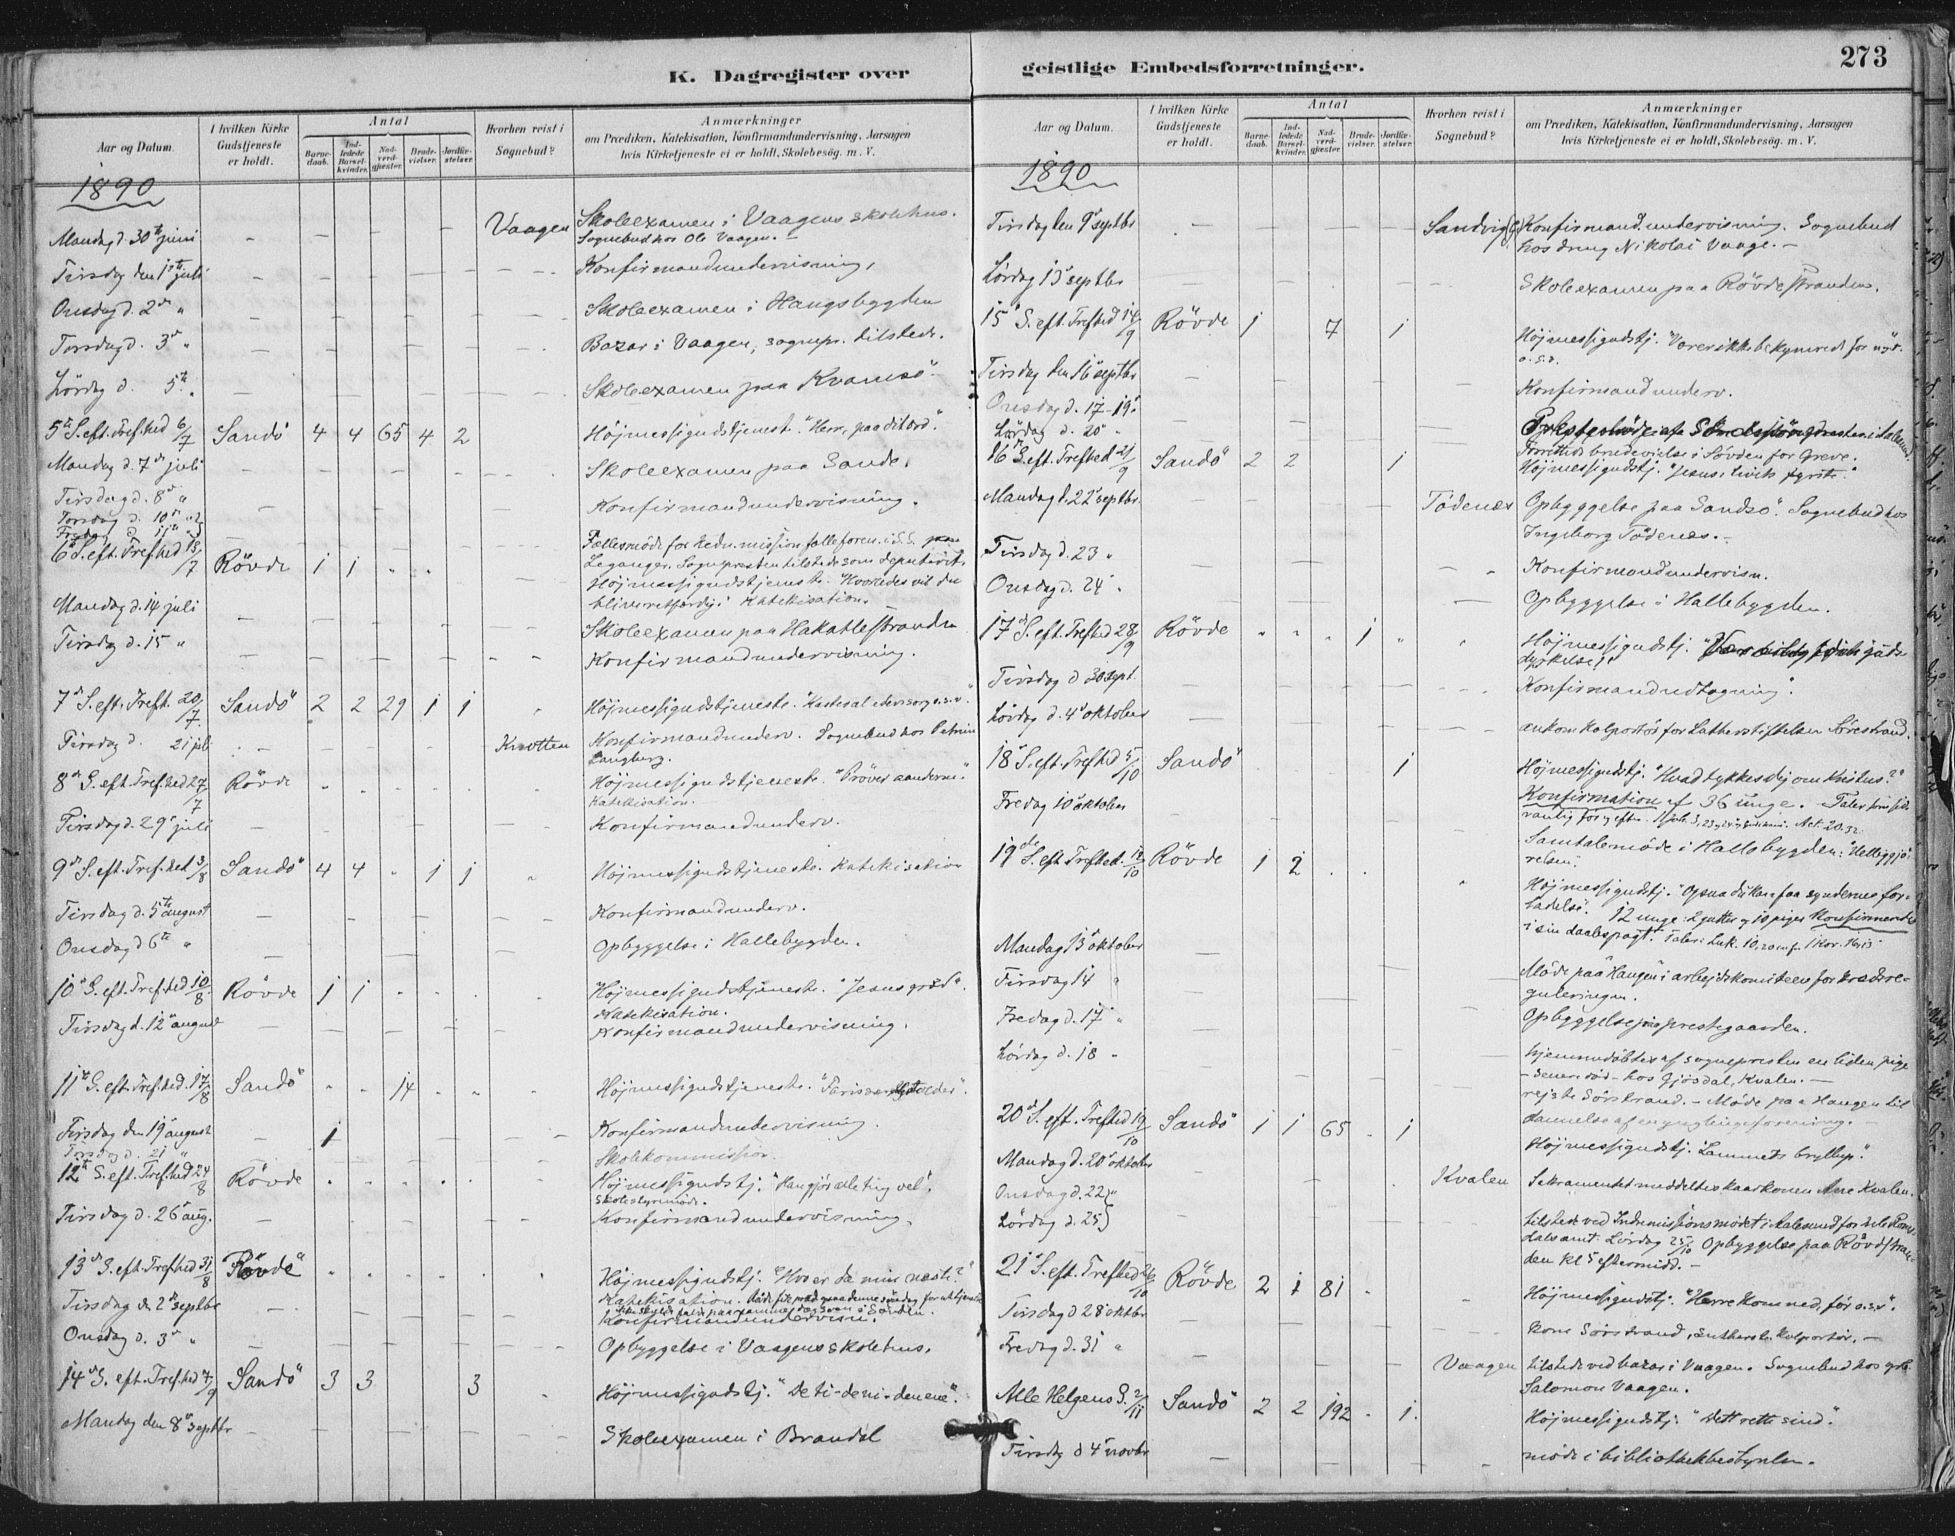 K. Dagregister over
Aar og Datum
I hvilken Kirke Gudstjeneste er holdt.
Antal
Barnedaab.
Indledede Barselkvinder.
Nadverdgjæster.
Brudevielser.
Jordfæstelser.
Hvorhen reist i Sognebud?
Anmærkninger
om Prædiken, Katekisation, Konfirmandundervisning, Aarsagen
hvis Kirketjeneste ei er holdt, Skolebesög. m. V.
1890
Mandag d. 30te juni – – – – – – Vaagen Skoleexamen i Vaagens skolehus.
Sognebud hos Ole Vaagen. –
Tirsdag den 1ste juli – – – – Konfirmandundervisning.
Onsdag d. 2den " – – – – Skoleexamen i Haugsbygden
Torsdag d. 3de " – – – – Bazar i Vaagen, sognepr. tilstede.
Lördag d. 5te " – – – – Skoleexamen paa Kvamsö
5te S. eft. Trefhed 6/7 Sandö 4 4 65 4 2 Höjmessigudstjeneste. "Herr, paa dit ord".
Mandag d. 7de juli – – – – Skoleexamen paa Sande.
Tirsdag d. 8de " – – Konfirmandundervisning.
Torsdag d. 10de "
Fredag d. 11te " Fællesmöde for Indre mission
6te S. eft. Trefhed 13/7 Rövde 1 1 " " Leganger. Sognepresten tilstede som deputeret.
Höjmessigudstjeneste. "Hvorledes vil du
blive retfærdig?" Katekisation.
Mandag d. 14 juli – – – Skoleexamen paa Hakallestranden
Tirsdag d. 15 " – – – Konfirmandundervisning.
7de S. eft. Treft. 20/7 Sandö 2 2 29 1 1 " Höjmessigudstjeneste. "Kaste al eders sorg o.s.v."
Tirsdag d. 21 juli – – Knotten Konfirmandunderv. Sognebud hos Petrine
Langberg.
8de S. eft. Trefhed 27/7 Rövde " " " " " Höjmessigudstjeneste. "Pröver aanderne".
Katekisation. –
Tirsdag d. 29de juli – – – Konfirmandunderv.
9de S. eft. Trefhed 3/8 Sandö 4 4 " 1 1 " Höjmessigudstjeneste. Katekisation
Tirsdag d. 5te august – – – Konfirmandunderv.
Onsdag d 6te " – – – Opbyggelse i Hallebygden.
10de S. eft. Trefhed 10/8 Rövde 1 1 " " " Höjmessigudstjeneste. "Jesu graad".
Katekisation.
Tirsdag d. 12te august – – – Konfirmandundervisning.
11te S. eft. Trefhed. 17/8 Sandö " " 14 " " " Höjmessigudstjeneste.
Tirsdag den 19de august – 1 – – Konfirmandundervisning.
Torsdag d. 21 " Skolekommission.
12te S. eft. Trefhed 24/8 Rövde " " " " " Höjmessigudstj. "Han gjör alle ting vel".
Skolestyremöde.
Tirsdag d. 26de aug. – – – Konfirmandundervisning.
13de S. eft. Trefhed 31/8 Rövde " " " " " Höjmessigudstj. "Hvo er da min næste?"
Katekisation.
Tirsdag den 2den septbr – – Konfirmandundervisn.
Onsdag d. 3de " – – – Opbyggelse i Vaagens skolehus.
14de S. eft. Trefhed 7/9 Sandö 3 3 3 " Höjmessigudstj. "De ti – de ni – den ene".
Mandag den 8de septbr – – – Skoleexamen i Brandal
geistlige Embedsforretninger.
273
Aar og Datum.
I hvilken Kirke Gudstjeneste er holdt.
Antal
Barnedaab.
Indledede Barselkvinder.
Nadverdgjæster.
Brudevielser.
Jordfæstelser.
Hvorhen reist i Sognebud?
Anmærkninger
om Prædiken, Katekisation, Konfirmandundervisning, Aarsagen
hvis Kirketjeneste ei er holdt, Skolebesög. m. V.
1890
Tirsdag den 9de septbr – – – – Sandvig Konfirmandundervisning. Sognebud
hos dreng Nikolai Vaage. –
Lördag 13de septbr – – – Skoleexamen paa Rövdestranden.
15de S. eft. Trefhed 14/9 Rövde 1 7 1 Höjmessigudstj. "Værer ikke bekymrede for
o.s.v.
Tirsdag den 16de septbr – – – Konfirmandunderv.
Onsdag d. 17 – 19de
Lördag d. 20de " Forrettet brudevielse i Sövden for Greve.
16de S. eft. Trefhed 21/9 Sandö 2 2 1 Höjmessigudstj. "Jesus: livets fyrste".
Mandag d. 22de septbr. – – – Tödenæs Opbyggelse paa Sandsö. Sognebud hos
Ingeborg Tödenæs. –
Tirsdag d. 23 " – – Konfirmandundervisn.
Onsdag d. 24 " – – Opbyggelse i Hallebygden.
17de S. eft. Trefhed 28/9 Rövde " " " 1 " " Höjmessigudstj.
dyrkelse!"
Tirsdag d 30 sept. – – Konfirmandudtagning.
Lördag d. 4de oktober – – ankom kolportör for Lutherstiftelsen Sörestrand.
18de S. eft. Trefhed 5/10 Sandö 1 Höjmessigudstj. "Hvad tykkes dig om Kristus?"
Konfirmation af 36 unge. –
Fredag 10de oktober – – Samtalemöde i Hallebygden: "Helliggjö-
relsen".
19de S. eft. Trefhed. 12/10 Rövde 1 2 " " Höjmessigudstj. "Ogsaa du kan faa syndernes for-
ladelse". 12 unge: 2 gutter og 10 piger Konfirmeredes
i sin daabspagt.
Mandag 13de oktober – – Möde paa Haugen i arbejdskomiteen for
guleringen.
Tirsdag 14 " – – Opbyggelse paa prestegaarden.
Fredag d. 17 " – – hjemmedöbtes af sognepresten en liden pige
– senere död – hos Gjösdal, Kvalen. –
Lördag d. 18 " – – rejste Sörstrand. – Möde paa Haugen til
dannelse af en ynglingeforening. –
20de S. eft. Trefhed 19/10 Sandö 1 1 65 " 1 Höjmessigudstj. "Lammets bryllup".
Mandag d. 20de oktober – – – Kvalen Sakramentet meddeltes kaarkonen Ane Kvalen.
Onsdag d. 22 "
Lördag d. 25 tilstede ved Indremissionsmödet i Aalesund for hele Roms-
dals amt. Lördag 25/10 Opbyggelse paa Rövdestran-
den kl 5 eftermidd. –
21de S. eft. Trefhed 26/10 Rövde 2 1 81 " " Höjmessigudstj. "Herre kom ned, för o.s.v".
Tirsdag d 28 oktbr. – – kom Sörstrand, Lutherst. kolportör. –
Fredag d. 31 " – – Vaagen tilstede ved bazar i Vaagen. Sognebud hos grb.
Salomon Vaagen.
Alle Helgens S. 2/11 Sandö 2 2 192 " 1. Höjmessigudstj: "Det rette sind".
Tirsdag d 4de novbr – – – möde i bibliothekbestyrelsen.